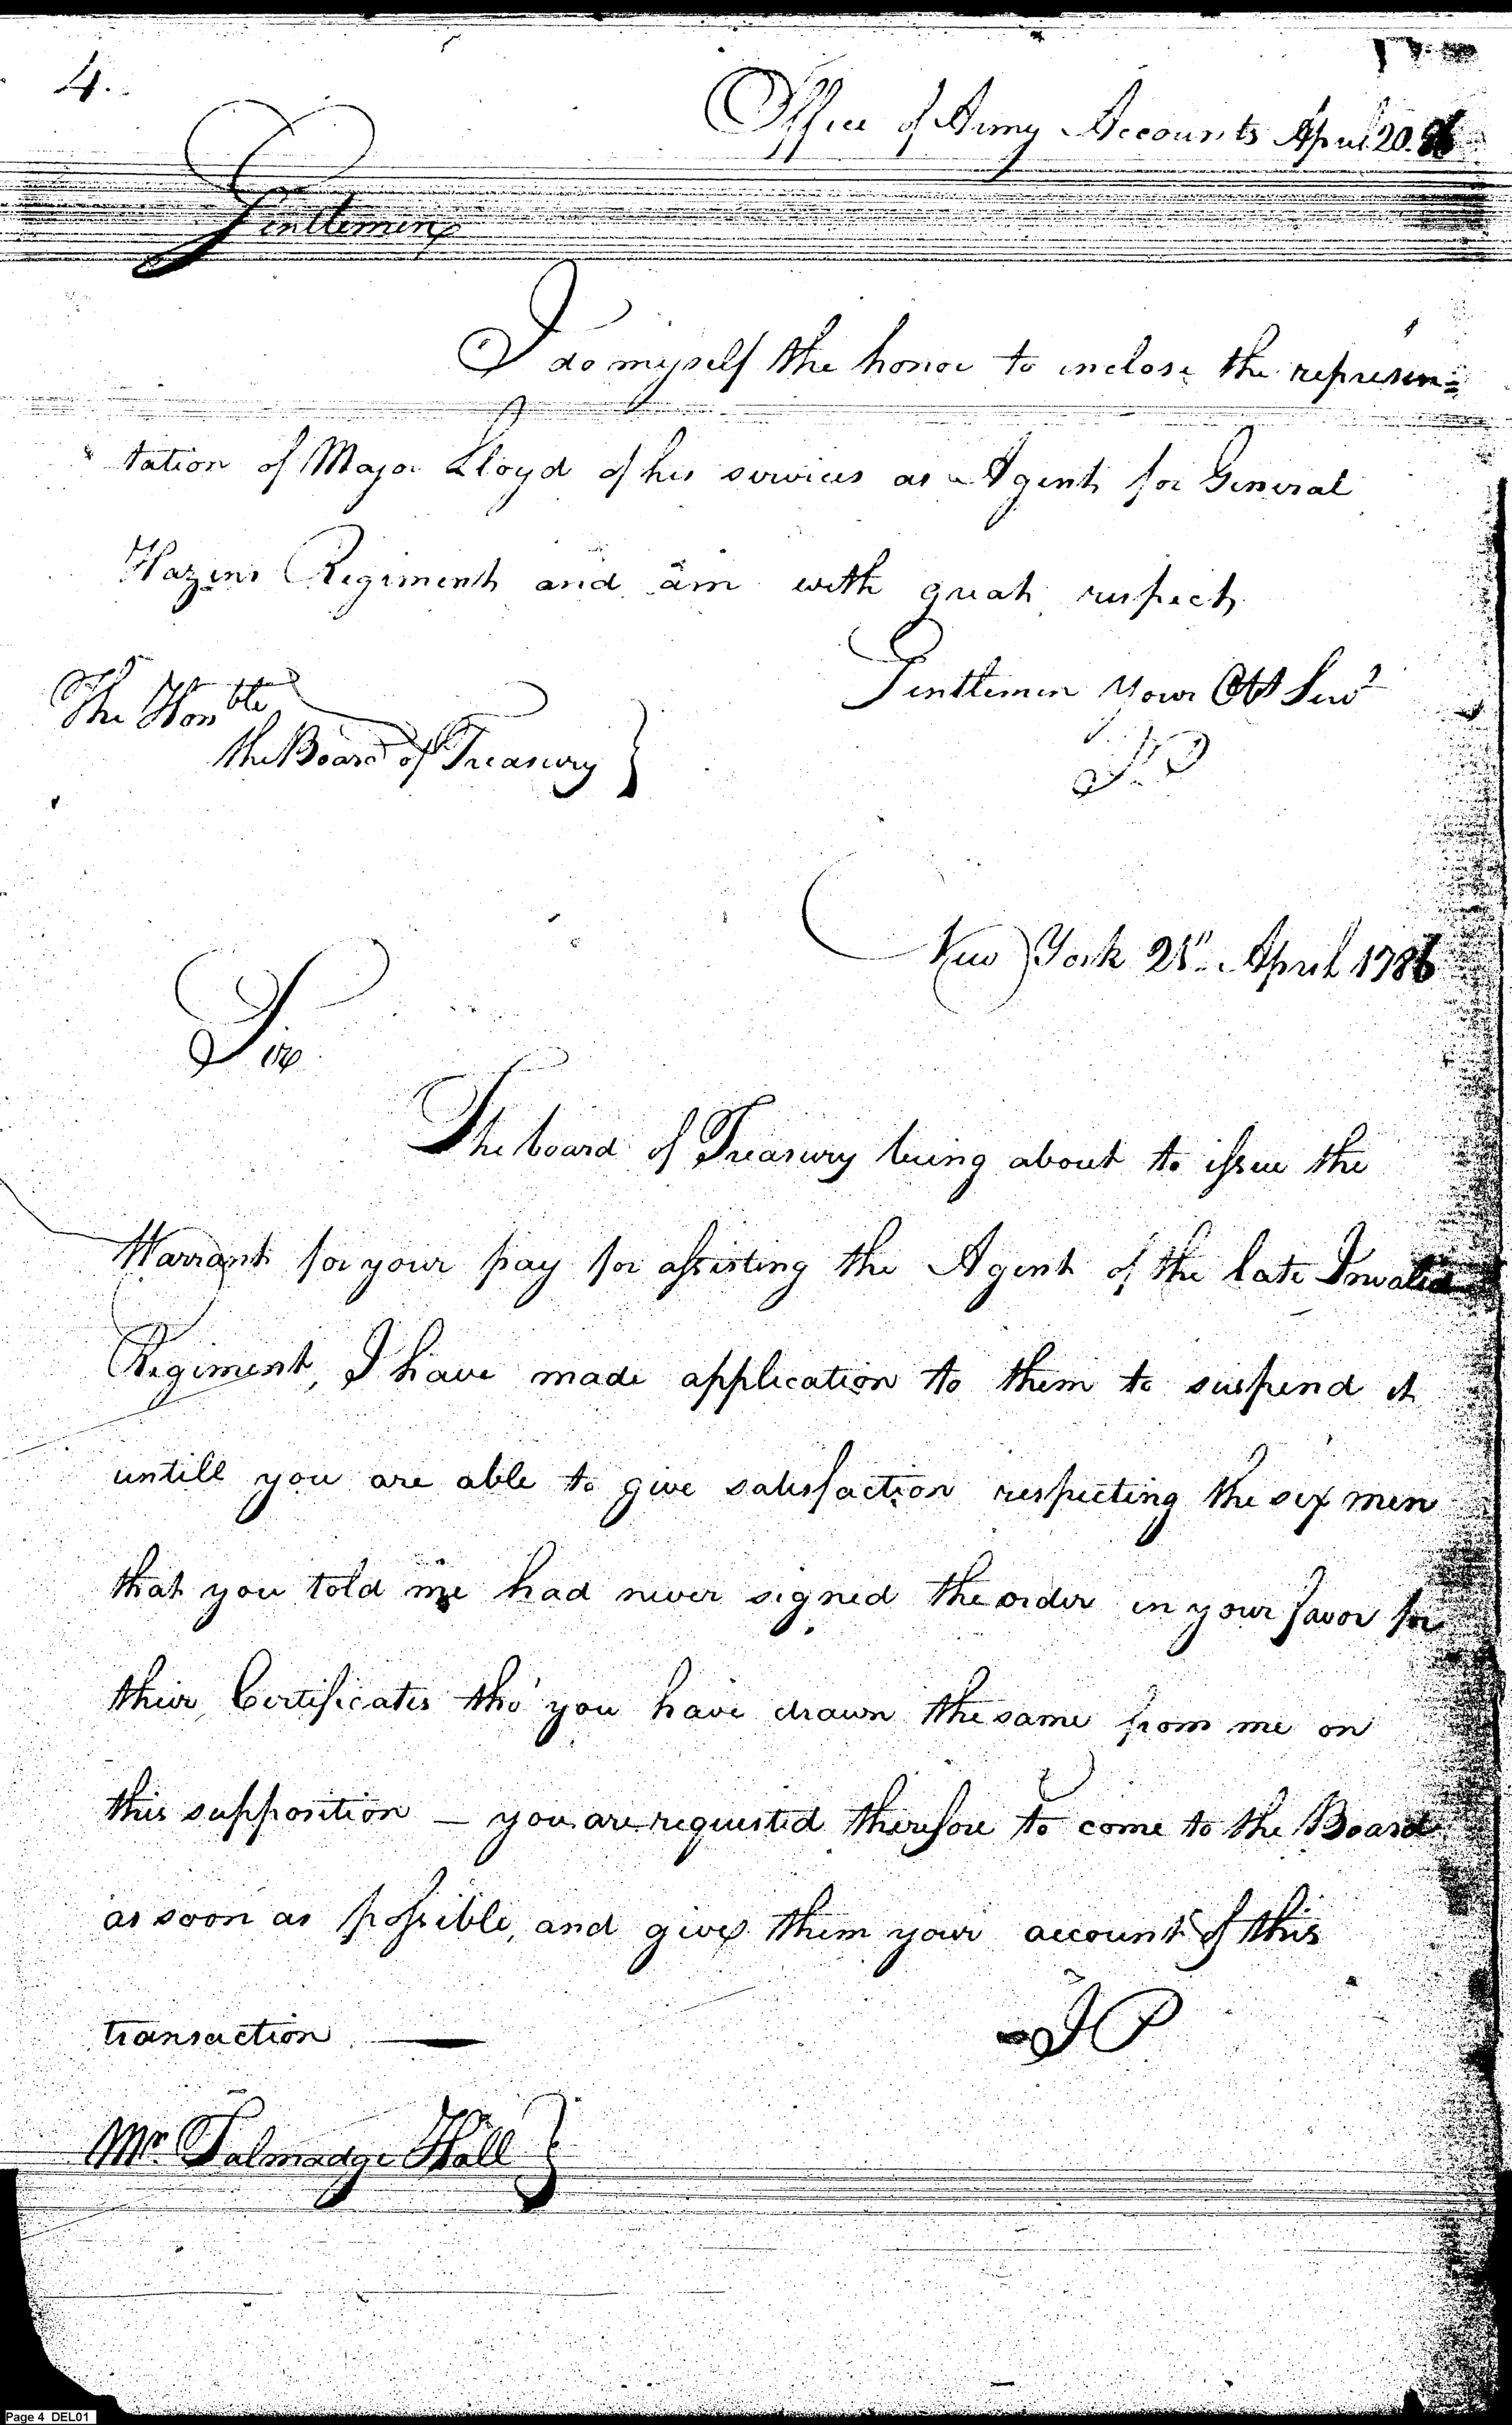 4.
Office of Army Accounts April 20. 86
Gentlemen
I do myself the honor to inclose the represen=
tation of Major Lloyd of his services as Agent for General
Hazens Regiment and am with great respect
Gentlemen your Obt Servt
The Honble
the Board of Treasury
J. P
New York 21st April 1786
Sir
The board of Treasury being about to issue the
Warrant for your pay for assisting the Agent of the late Invalid
Regiment, I have made application to them to suspend it
untill you are able to give satisfaction respecting the six men
that you told me had never signed the order in your favor for
their Certificates tho' you have drawn the same from me on
this supposition — you are requested therefore to come to the Board
as soon as possible, and give them your account of this
transaction —
JP
Mr. Talmadge Hall
Page 4 DEL01